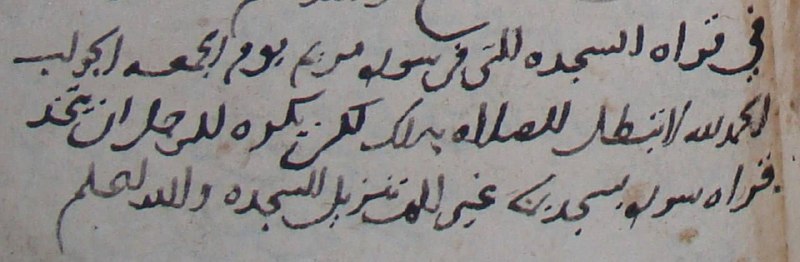 في قراه السجده اللتي في سوره مريم يوم الجمعه الجواب
الحمد لله لا تبطل الصلاه بذلك لكن يكره للرجل ان يتخذ
قراه سوره بسجدة غير الم تنزيل السجده والله اعلم